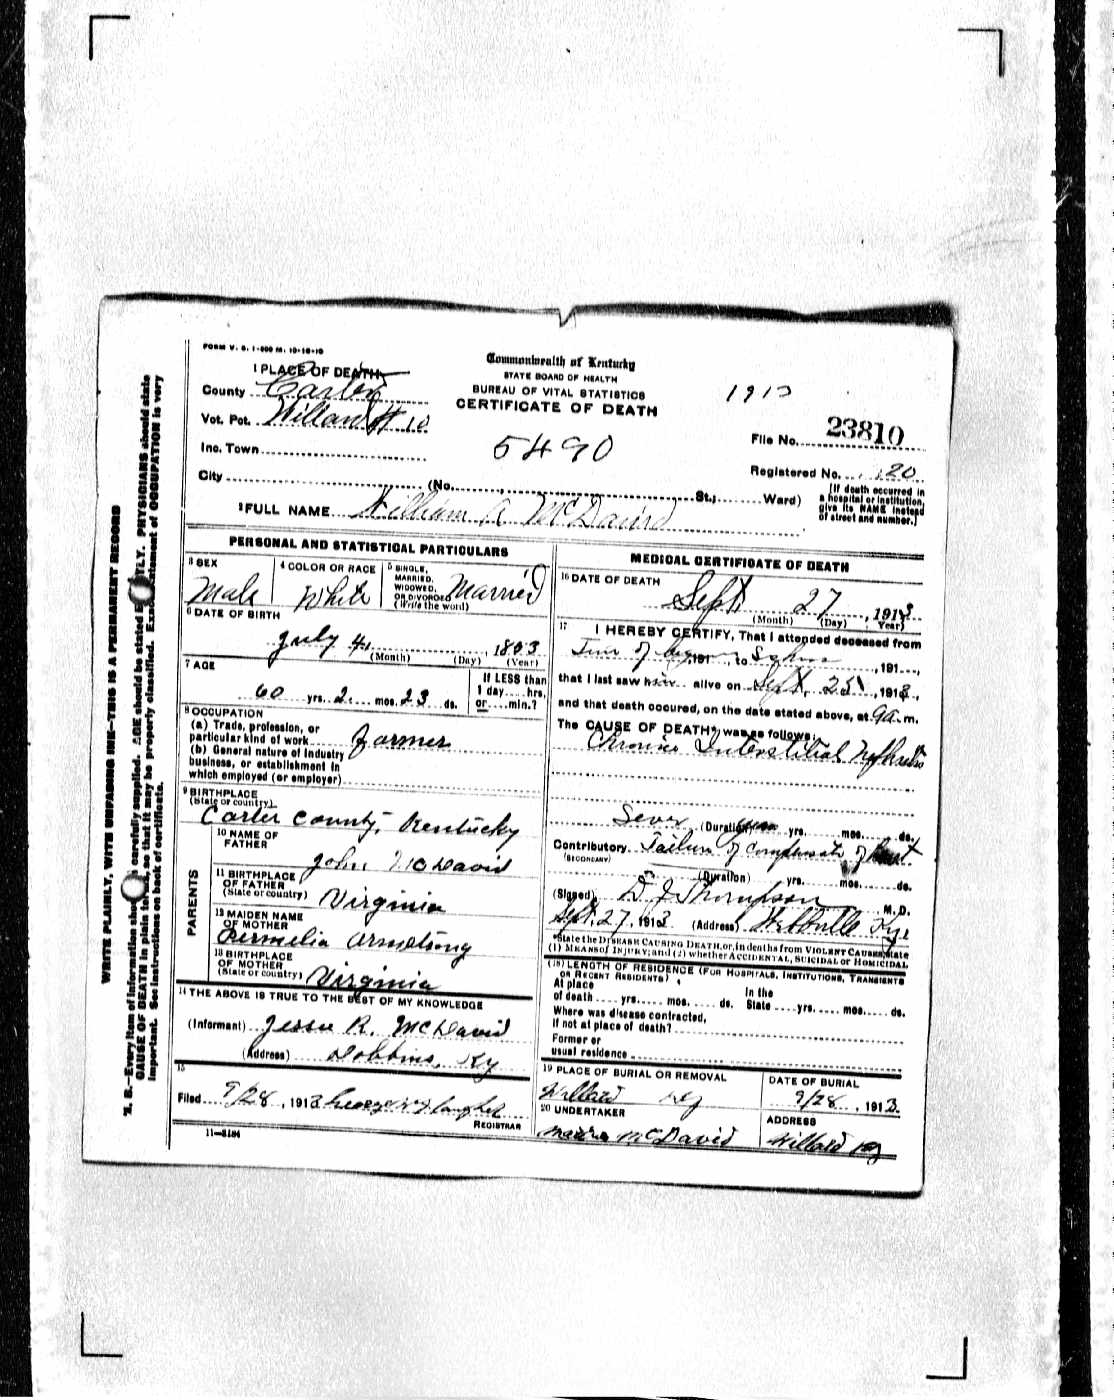 FORM V. S. 1-500 M. 10-16-10
Commonwealth of Kentucky
STATE BOARD OF HEALTH
BUREAU OF VITAL STATISTICS
CERTIFICATE OF DEATH
1 PLACE OF DEATH
County Carter
Vot. Pct. Willard # 10
Inc. Town
City (No. , St.; Ward)
5490
1913
File No. 23810
Registered No. 20
(If death occurred in
a hospital or institution,
give its NAME instead
of street and number.)
2 FULL NAME William A McDavid
PERSONAL AND STATISTICAL PARTICULARS
3 SEX
Male
4 COLOR OR RACE
White
5 SINGLE,
MARRIED,
WIDOWED,
OR DIVORCED
(Write the word)
Married
6 DATE OF BIRTH
July 4, 1853
(Month) (Day) (Year)
7 AGE
60 yrs. 2 mos. 23 ds.
If LESS than
1 day hrs,
or min.?
8 OCCUPATION
(a) Trade, profession, or
particular kind of work Farmer
(b) General nature of Industry
business, or establishment in
which employed (or employer)
9 BIRTHPLACE
(State or country)
Carter County, Kentucky
PARENTS
10 NAME OF
FATHER
John McDavid
11 BIRTHPLACE
OF FATHER
(State or country)
Virginia
12 MAIDEN NAME
OF MOTHER
Permelia Armstrong
13 BIRTHPLACE
OF MOTHER
(State or country)
Virginia
14 THE ABOVE IS TRUE TO THE BEST OF MY KNOWLEDGE
(Informant) Jessie R. McDavid
(Address) Dobbins, Ky
15
Filed 9/28, 1913 George
REGISTRAR
11-3184
MEDICAL CERTIFICATE OF DEATH
16 DATE OF DEATH
Sept 27, 1913
(Month) (Day) Year)
17 I HEREBY CERTIFY, That I attended deceased from
Time of , 191 , to , 191 ,
that I last saw him alive on Sept. 25, 1913,
and that death occured, on the date stated above, at 9 a. m.
The CAUSE OF DEATH* was as follows:
Chronic Interstitial Nephritis
(Duration) yrs. mos. ds.
Contributory Failure of Compensate of Heart
(SECONDARY)
(Duration) yrs. mos. ds.
(Signed) D. J. Thompson M. D.
Sept. 27, 1913 (Address) Webbville Kye
*State the DISEASE CAUSING DEATH, or, in deaths from VIOLENT CAUSES, state
(1) MEANS of INJURY; and (2) whether ACCIDENTAL, SUICIDAL or HOMICIDAL
(18) LENGTH OF RESIDENCE (FOR HOSPITALS, INSTITUTIONS, TRANSIENTS
OR RECENT RESIDENTS)
At place In the
of death yrs. mos. ds. State yrs. mos. ds.
Where was disease contracted,
If not at place of death?
Former or
usual residence
19 PLACE OF BURIAL OR REMOVAL
Willard Ky
DATE OF BURIAL
9/28, 1913.
20 UNDERTAKER
McDavid
ADDRESS
Willard Ky
WRITE PLAINLY, WITH UNFADING INK—THIS IS A PERMANENT RECORD
N. B.—Every item of information should be carefully supplied. AGE should be stated EXACTLY. PHYSICIANS should state
CAUSE OF DEATH in plain terms, so that it may be properly classified. Exact statement of OCCUPATION is very
important. See instructions on back of certificate.